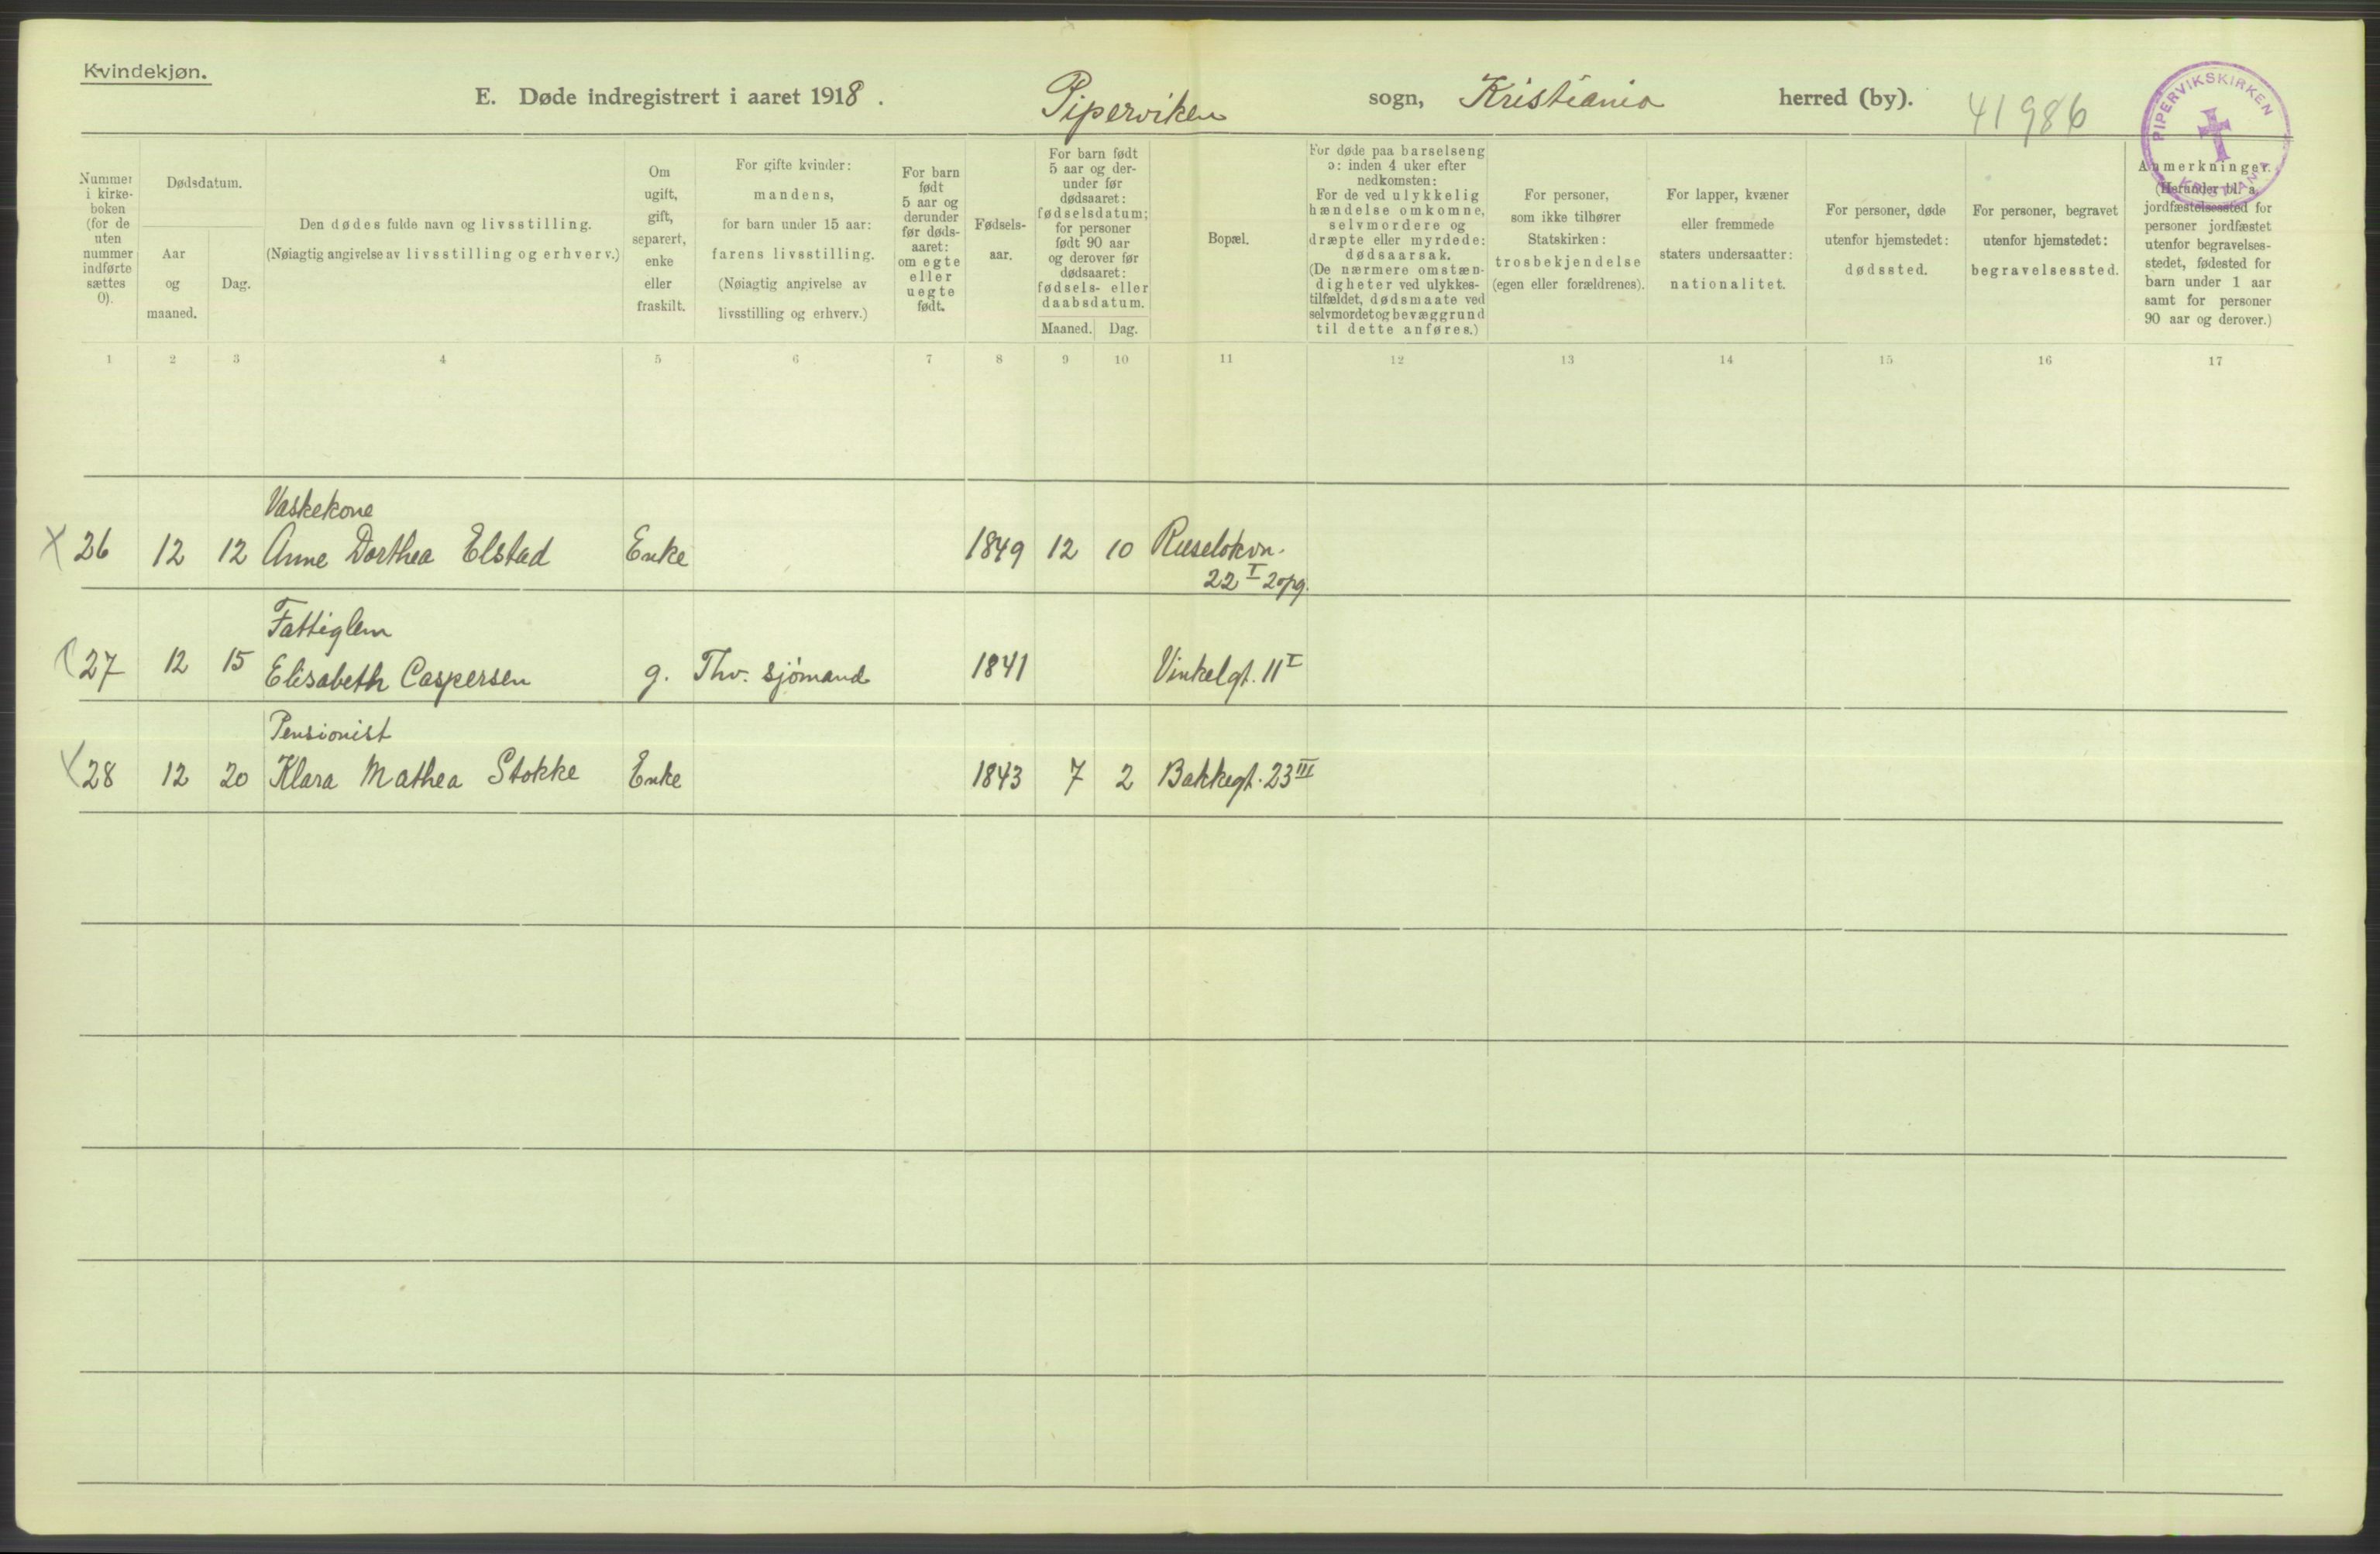 Kvindekjøn.
E. Døde indregistrert i aaret 1918. Piperviken sogn, Kristiania herred (by). 41986
PIPERVIKSKIRKEN
Nummer i kirke- boken (for de uten nummer indførte sættes 0).
Dødsdatum.
Aar og maaned.
Dag.
Den dødes fulde navn og livsstilling.
(Nøiagtig angivelse av livsstilling og erhverv.)
Om ugift, gift, separert, enke eller fraskilt.
For gifte kvinder: mandens, for barn under 15 aar: farens livsstilling. (Nøiagtig angivelse av livsstilling og erhverv.)
For barn født 5 aar og derunder før døds- aaret: om egte eller uegte født.
Fødsels- aar.
For barn født 5 aar og der- under før dødsaaret: fødselsdatum; for personer født 90 aar og derover før dødsaaret: fødsels- eller daabsdatum.
Maaned.
Dag.
Bopæl.
For døde paa barselseng ɔ: inden 4 uker efter nedkomsten: For de ved ulykkelig hændelse omkomne, selvmordere og dræpte eller myrdede: dødsaarsak. (De nærmere omstæn- digheter ved ulykkes- tilfældet, dødsmaate ved selvmordet og bevæggrund til dette anføres.)
For personer, som ikke tilhører Statskirken: trosbekjendelse (egen eller forældrenes).
For lapper, kvæner eller fremmede staters undersaatter: nationalitet.
For personer, døde utenfor hjemstedet: dødssted.
For personer, begravet utenfor hjemstedet: begravelsessted.
Anmerkninger. (Herunder bl. a. jordfæstelsessted for personer jordfæstet utenfor begravelses- stedet, fødested for barn under 1 aar samt for personer 90 aar og derover.)
1 2 3 4 5 6 7 8 9 10 11 12 13 14 15 16 17
Vaskekone
26 12 12 Anne Dorthea Elstad Enke 1849 12 10 Ruselokvn.
22 I 2 opg.
Fattiglem
27 12 15 Elisabeth Caspersen g. Thv. sjømand 1841 Vinkelgt. 11 I
Pensionist
28 12 20 Klara Mathea Stokke Enke 1843 7 2 Bakkegt. 23 III